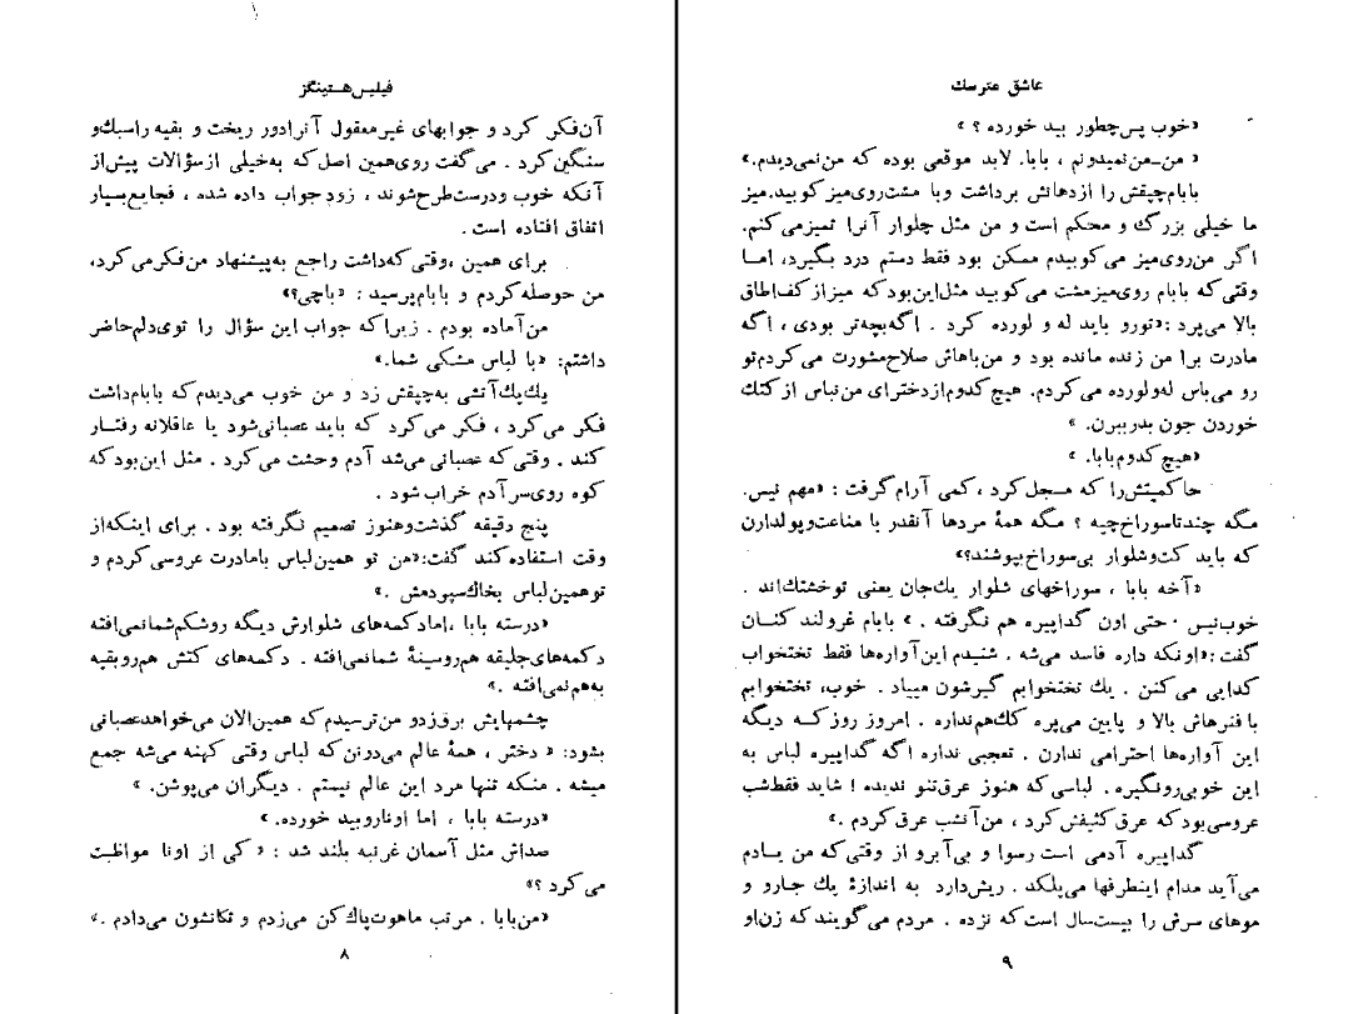 فیلیس هستینگز
آن فکر کرد و جوابهای غیرمعقول آنرا دور ریخت و بقیه را سبك و
سنگین کرد . می گفت روی همین اصل که به خیلی از سؤالات پیش از
آنکه خوب و درست طرح شوند ، زود جواب داده شده ، فجایع بسیار
اتفاق افتاده است .
برای همین ، وقتی که داشت راجع به پیشنهاد من فکر می کرد،
من حوصله کردم و بابام پرسید : «باچی؟»
من آماده بودم . زیرا که جواب این سؤال را توی دلم حاضر
داشتم: «با لباس مشکی شما.»
یك پك آتشی به چپقش زد و من خوب می دیدم که بابام داشت
فکر می کرد ، فکر می کرد که باید عصبانی شود یا عاقلانه رفتار
کند . وقتی که عصبانی می شد آدم وحشت می کرد . مثل این بود که
کوه روی سر آدم خراب شود .
پنج دقیقه گذشت و هنوز تصمیم نگرفته بود . برای اینکه از
وقت استفاده کند گفت: «من تو همین لباس با مادرت عروسی کردم و
تو همین لباس بخاك سپردمش .»
«درسته بابا ، اما دکمه های شلوارش دیگه رو شکم شما نمی افته
دکمه های جلیقه هم رو سینهٔ شما نمی افته . دکمه های کتش هم رو بقیه
به هم نمی افته .»
چشمهایش برق زد و من ترسیدم که همین الان می خواهد عصبانی
بشود: « دختر ، همهٔ عالم می دونن که لباس وقتی کهنه می شه جمع
میشه . منکه تنها مرد این عالم نیستم . دیگران می پوشن. »
«درسته بابا ، اما اونارو بید خورده. »
صداش مثل آسمان غرنبه بلند شد : « کی از اونا مواظبت
می کرد ؟»
«من بابا . مرتب ماهوت پاك کن می زدم و تکانشون می دادم .»
۸
عاشق مترسك
«خوب پس چطور بید خورده ؟ »
« من ـ من نمیدونم ، بابا. لابد موقعی بوده که من نمی دیدم.»
بابام چپقش را از دهانش برداشت و با مشت روی میز کوبید. میز
ما خیلی بزرگ و محکم است و من مثل چلوار آنرا تمیز می کنم.
اگر من روی میز می کوبیدم ممکن بود فقط دستم درد بگیرد، اما
وقتی که بابام روی میز مشت می کوبید مثل این بود که میز از کف اطاق
بالا می پرد : «تورو باید له و لورده کرد . اگه بچه تر بودی ، اگه
مادرت برا من زنده مانده بود و من باهاش صلاح مشورت می کردم تو
رو می باس له و لورده می کردم. هیچ کدوم از دخترای من نباس از کتك
خوردن جون بدر ببرن. »
«هیچ کدوم بابا. »
حاکمیتش را که مسجل کرد ، کمی آرام گرفت : «مهم نیس.
مگه چند تا سوراخ چیه ؟ مگه همهٔ مردها آنقدر با مناعت و پولدارن
که باید کت و شلوار بی سوراخ بپوشند؟»
«آخه بابا ، سوراخهای شلوار یك جان یعنی تو خشتك اند .
خوب نیس . حتی اون گداپیره هم نگرفته . » بابام غرولند کنان
گفت : «اونکه داره فاسد می شه . شنیدم این آواره ها فقط تختخواب
گدایی می کنن . یك تختخوابم گیرشون میاد . خوب، تختخوابم
با فنرهاش بالا و پایین می پره كك هم نداره . امروز روز کـه دیگه
این آواره ها احترامی ندارن . تعجبی نداره اگه گداپیره لباس به
این خوبی رو نگیره . لباسی که هنوز عرق تنو ندیده ! شاید فقط شب
عروسی بود که عرق کثیفش کرد ، من آنشب عرق کردم .»
گداپیره آدمی است رسوا و بی آبرو از وقتی که من یـادم
می آید مدام اینطرفها می پلکد . ریش دارد به اندازهٔ یك جارو و
موهای سرش را بیست سال است که نزده . مردم می گویند که زن او
۹